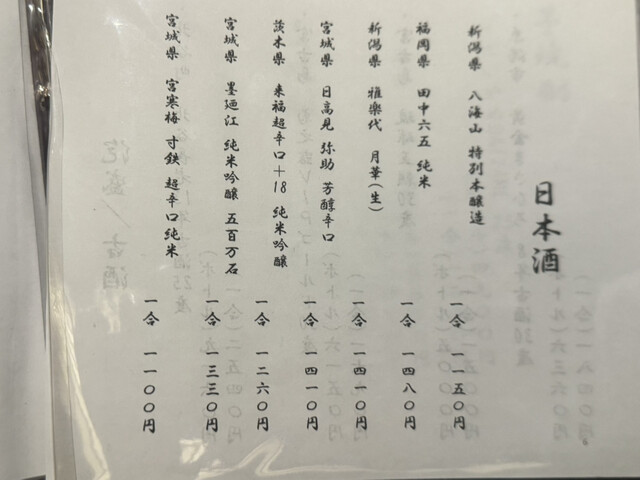 日本酒
新潟県 八海山 特別本醸造 一合 一一五〇円
福岡県 田中六五 純米 一合 一四八〇円
新潟県 雅楽代 月華(生) 一合 一四一〇円
宮城県 日高見 弥助 芳醇辛口 一合 一四一〇円
茨木県 来福超辛口+18 純米吟醸 一合 一二六〇円
宮城県 墨廼江 純米吟醸 五百万石 一合 一三三〇円
宮城県 宮寒梅 寸鉄 超辛口純米 一合 一一〇〇円
6